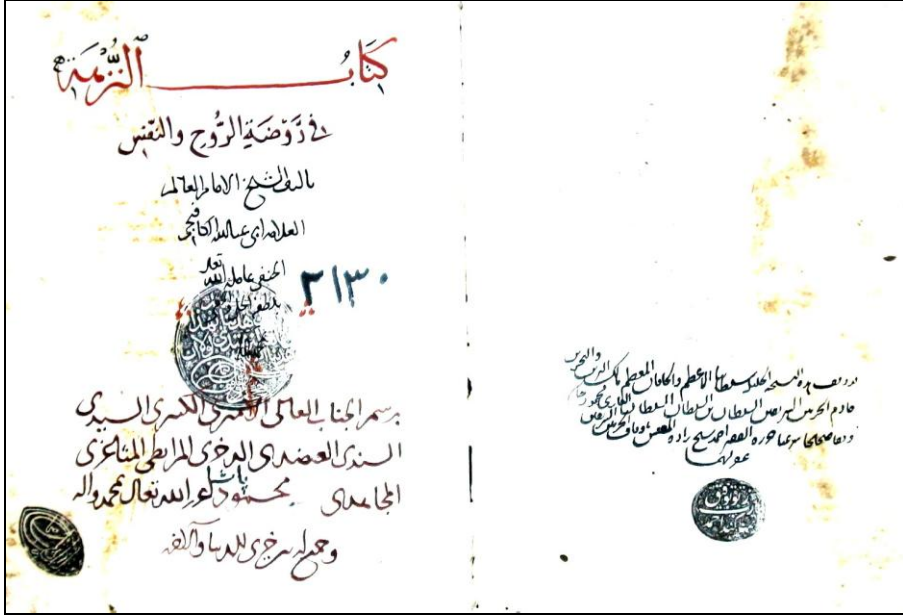 كتاب النزهة
في رَوْضَةِ الرُّوح والنفس
تاليف الشيخ الامام العالم
العلامة ابي عبد الله الكافيجي
الحنفي عامله الله تعالى
بلطفه
٢١٣٠
برسم الجناب العالي الاميري الكبيري السيدي
السندي العضدي الذخري المرابطي المثاغري
المجاهدي محمود باشا اعز الله تعالى بمحمد واله
وجمع له بين خيري الدنيا والاخرة
قد وقف هذه النسخة الجليلة سلطاننا الاعظم والخاقان المعظم مالك البرين والبحرين
خادم الحرمين الشريفين السلطان بن السلطان السلطان الغازي محمود خان
وقفا صحيحا شرعيا حرره الفقير احمد شيخ زاده المفتش باوقاف الحرمين الشريفين
غفر لهما